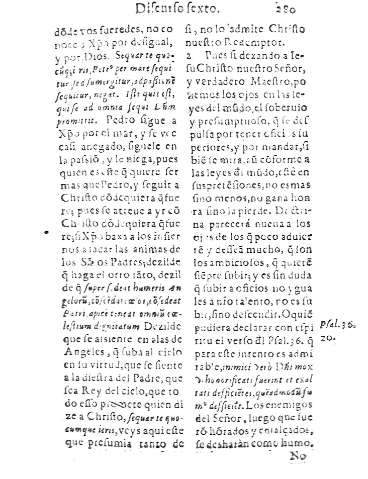 Discurso sexto. 280
dõde vos fueredes, no co
noce a Xp̃o por desigual,
y por Dios. Sequar te quo-
cũq; ieris, Petrº per mare sequi
tur, sed submergitur, ad passionẽ
sequitur, negat. Iste quis est,
qui se ad omnia sequi
promittit. Pedro sigue a
Xp̃o por el mar, y se ve
casi anegado, siguele en
la passiõ, y le niega, pues
quien es este q̃ quiere ser
mas que Pedro, y seguir a
Christo dõde quiera q̃ fue
re; pues se atreue a yr cõ
Christo dõde quiera q̃ fue
re, si Xp̃o baxa a los infier
nos a sacar las animas de
los Sãtos Padres; dezilde
q̃ haga el otro tãto, dezil
de q̃ super sedeat humeris An
gelorũ,
Patri
lestium dignitatum Dezilde
que se assiente en alas de
Angeles, q̃ suba al cielo
en su virtud, que se siente
a la diestra del Padre, que
sea Rey del cielo, que to
do esso promete quien di
ze a Christo, sequar te quo-
cumque ieris, veys aqui este
que presumia tanto de
si, no lo admite Christo
nuestro Redemptor.
2 Pues si dexando a Ie-
su Christo nuestro Señor,
y verdadero Maestro, po
nemos los ojos en las le-
yes del mũdo, el soberuio
y presumptuoso, q̃ se des
pulsa por tener oficios su
periores, y por mandar, si
biẽ se mira, aũ cõforme a
las leyes dl mũdo, este en
sus pretẽsiones, no es mas
sino menos, no gana honra
sino la pierde. Doctri-
na parecerá nueua a los
ojos de los q̃ poco aduier
tẽ y dessẽa mucho, q̃ son
los ambiciosos, q̃ quierẽ
siẽpre subir; y es sin duda
q̃ subir a oficios no ygua
les a nio talento, no es su
bir, sino descendir. O quiẽ
pudiera declarar con espi
ritu el verso dl Psal. 36. q̃
para este intento es admi
rable, inimici verò Dñi mox
vt honorificati fuerint et exal
tati deficiẽtes, quẽadmodũ fu
mº deficiẽt. Los enemigos
del Señor, luego que fue
rõ hõrados y ensalçados,
se desharán como humo.
No
Psal. 36.
20.